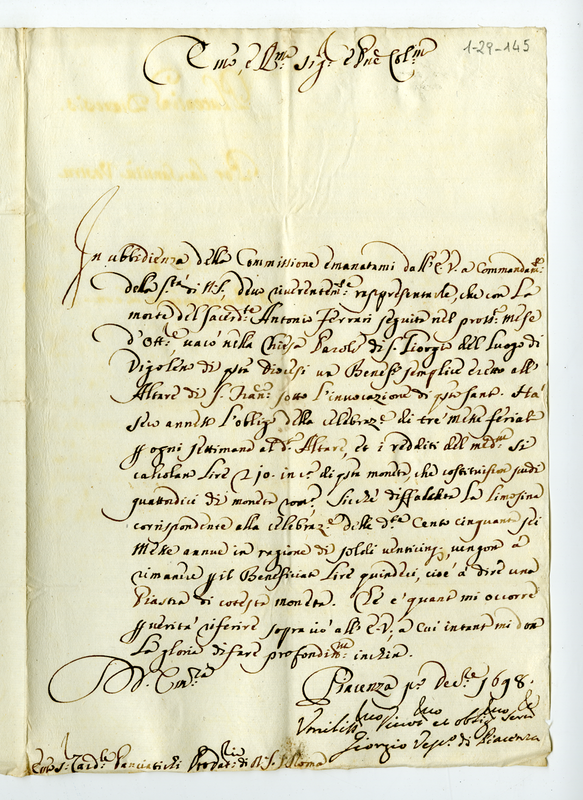 1-29-145
Emo, e Rmo Sig.r e Pne Col.mo
In ubbidienza della Commissione emanatami dall'E.V. a Commandam.to
della S.tà di N.S., devo riverentem.te rappresentarle, che con la
morte del Sacerd.te Antonio Ferrari seguita nel pross.o Mese
d'Ott.e vacò nella Chiesa Parole di S. Giorgio del luogo di
Vigoleno di q'ta Diocesi un Benef.o semplice eretto all'
Altare di S. Fran.o sotto l'invocazione di q'to Santo. Ha
seco annesso l'obligo della celebraz.e di trè Messe feriali
p ogni settimana al d.o Altare, et i redditi del med.mo si
calcolan lire 210. in c.a di q'ta moneta, che costituiscon scudi
quattordici di moneta rom.a, sicchè diffalcata la limosina
corrispondente alla celebraz.e delle d.te Cento cinquanta sei
Messe annue in ragione di soldi venticinq, vengon à
rimanere p il Beneficiato lire quindeci, cioè à dire una
Piastra di cotesta moneta. Ed è quant mi occorre
p verità riferire sopra ciò all'E.V., a cui intanto mi don
la gloria di fare profondiss.mo inchin.
D. V. Em.za
Piacenza p.o Dec.bre 1698.
Umiliss.mo Divot.mo et oblig.mo Serv.e
Giorgio Vesc.o di Piacenza
Emo S.r Card.le Panciatichi Prodat.rio di N.S. Roma